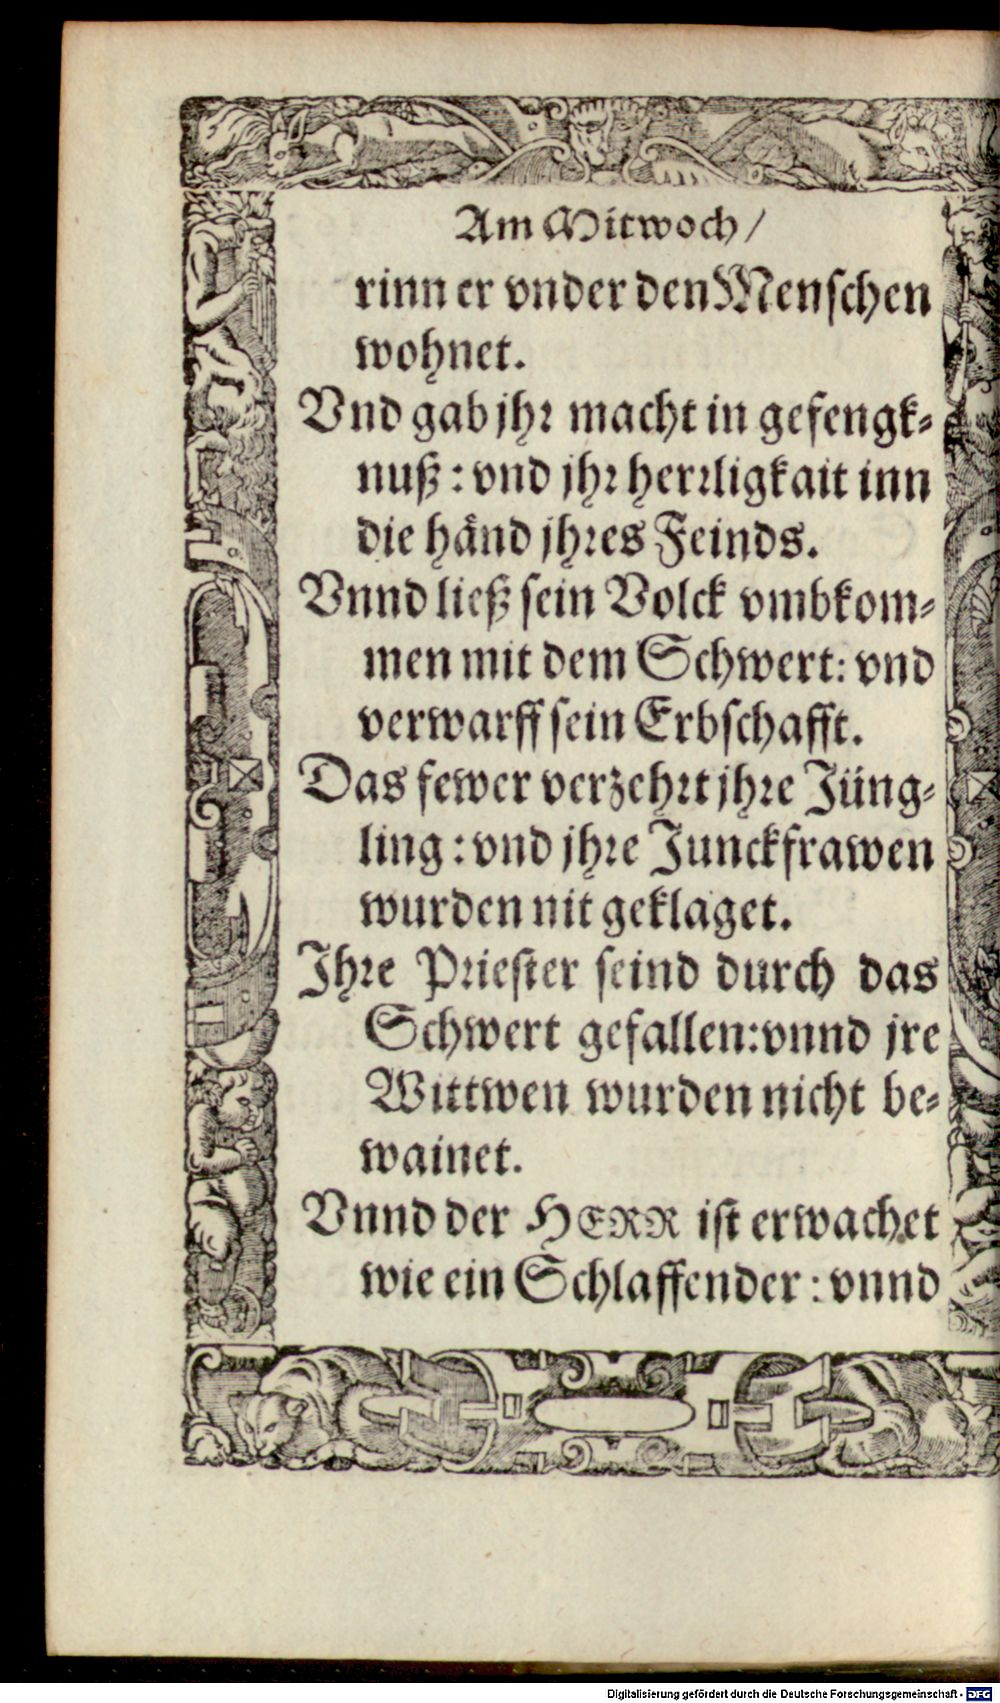 Am Mitwoch /
rinn er vnder den Menschen
wohnet.
Vnd gab jhr macht in gefengk-
nuß : vnd jhr herrligkait inn
die händ jhres Feinds.
Vnnd ließ sein Volck vmbkom-
men mit dem Schwert: vnd
verwarff sein Erbschafft.
Das fewer verzehrt jhre Jüng-
ling : vnd jhre Junckfrawen
wurden nit geklaget.
Ihre Priester seind durch das
Schwert gefallen: vnnd jre
Wittwen wurden nicht be-
wainet.
Vnnd der HERR ist erwachet
wie ein Schlaffender : vnnd
Digitalisierung gefördert durch die Deutsche Forschungsgemeinschaft - DFG